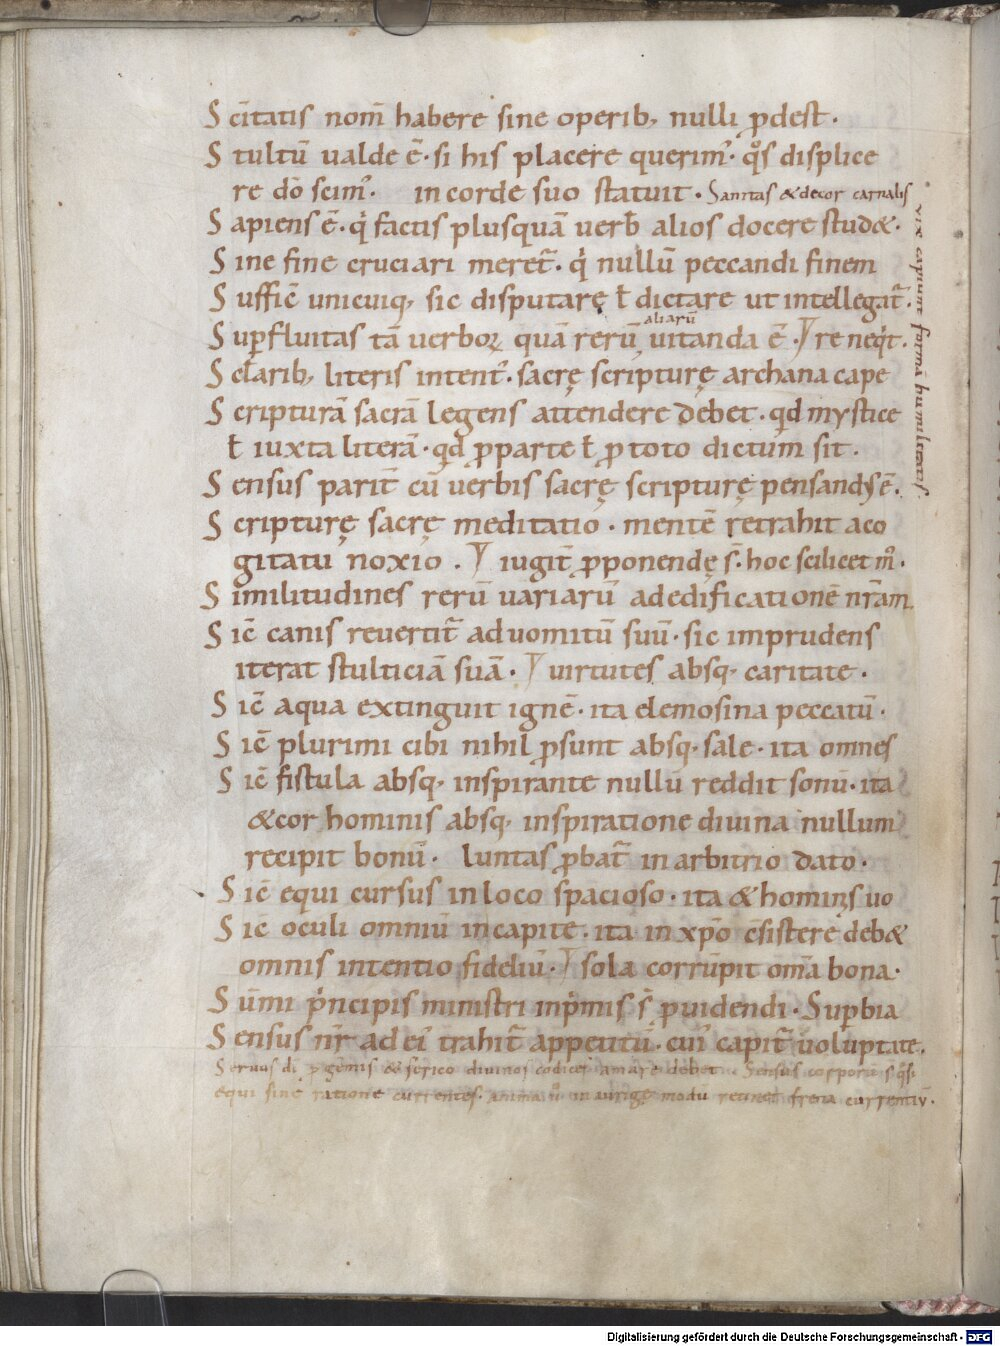 Scītatis nom̄ habere sine operib; nulli ꝓdest.
Stultū ualde ē. si his placere querim᷒. qͦs displice
re dō scim᷒. in corde suo statuit. Sanitas & decor carnalis
Sapiens ē. q̇ factis plusquā uerb̄ alios docere stud&.
Sine fine cruciari meret᷒. q̇ nullū peccandi finem
Suffic̄ unicuiq; sic disputarę ł dictare ut intellegat᷒.
aliarū
Suꝑfluitas tā uerboꝝ quā rerū uitanda ē. re neq̇t.
Sclarib; literis intent᷒. sacrę scripturę archana cape
Scripturā sacrā legens attendere debet. qd mystice
ł iuxta literā. qd ꝓ parte ł ꝓ toto dictum sit.
Sensus parit̄ cū uerbis sacrę scripturę pensandꝰ ē.
Scripturę sacrę meditatio. mentē retrahit a co
gitatu noxio. iugit̄ ꝓponendę s̄. hoc scilicet m̊.
Similitudines rerū uariarū ad edificationē nr̄am
Sic̄ canis reuertit᷒ ad uomitū suū. sic imprudens
iterat stulticiā suā. uirtutes absq; caritate.
Sic̄ aqua extinguit ignē. ita elemosina peccatū.
Sic̄ plurimi cibi nihil ꝓsunt absq; sale. ita omnes
Sic̄ fistula absq; inspirante nullū reddit sonū. ita
& cor hominis absq; inspiratione diuina nullum
recipit bonū. luntas ꝓbat᷒ in arbitrio dato.
Sic̄ equi cursus in loco spacioso. ita & hominis uo
Sic̄ oculi omniū in capite. ita in xp̄o c̄sistere deb&
omnis intentio fideliū. sola corrūpit om̄a bona.
Sūmi pͥncipis ministri inpͥmis s̄ ꝓuidendi. Suꝑbia
Sensus nr̄ ad ei᷒ trahit᷒ appetitū. cui᷒ capit᷒ uoluptate.
Seruus dī ꝓ gēmis & serico diuinos codices amare debet. Sensus corporis s̄ qͣsi
equi sine ratione currentes. anima ů in aurigę modū retinet frena currentiū.
uix capiunt formā humilitatis
Digitalisierung gefördert durch die Deutsche Forschungsgemeinschaft - DFG